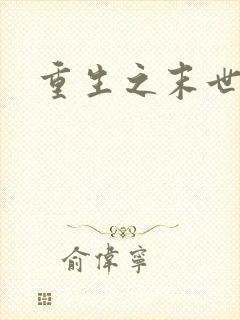 重生之末世
俞偉寧